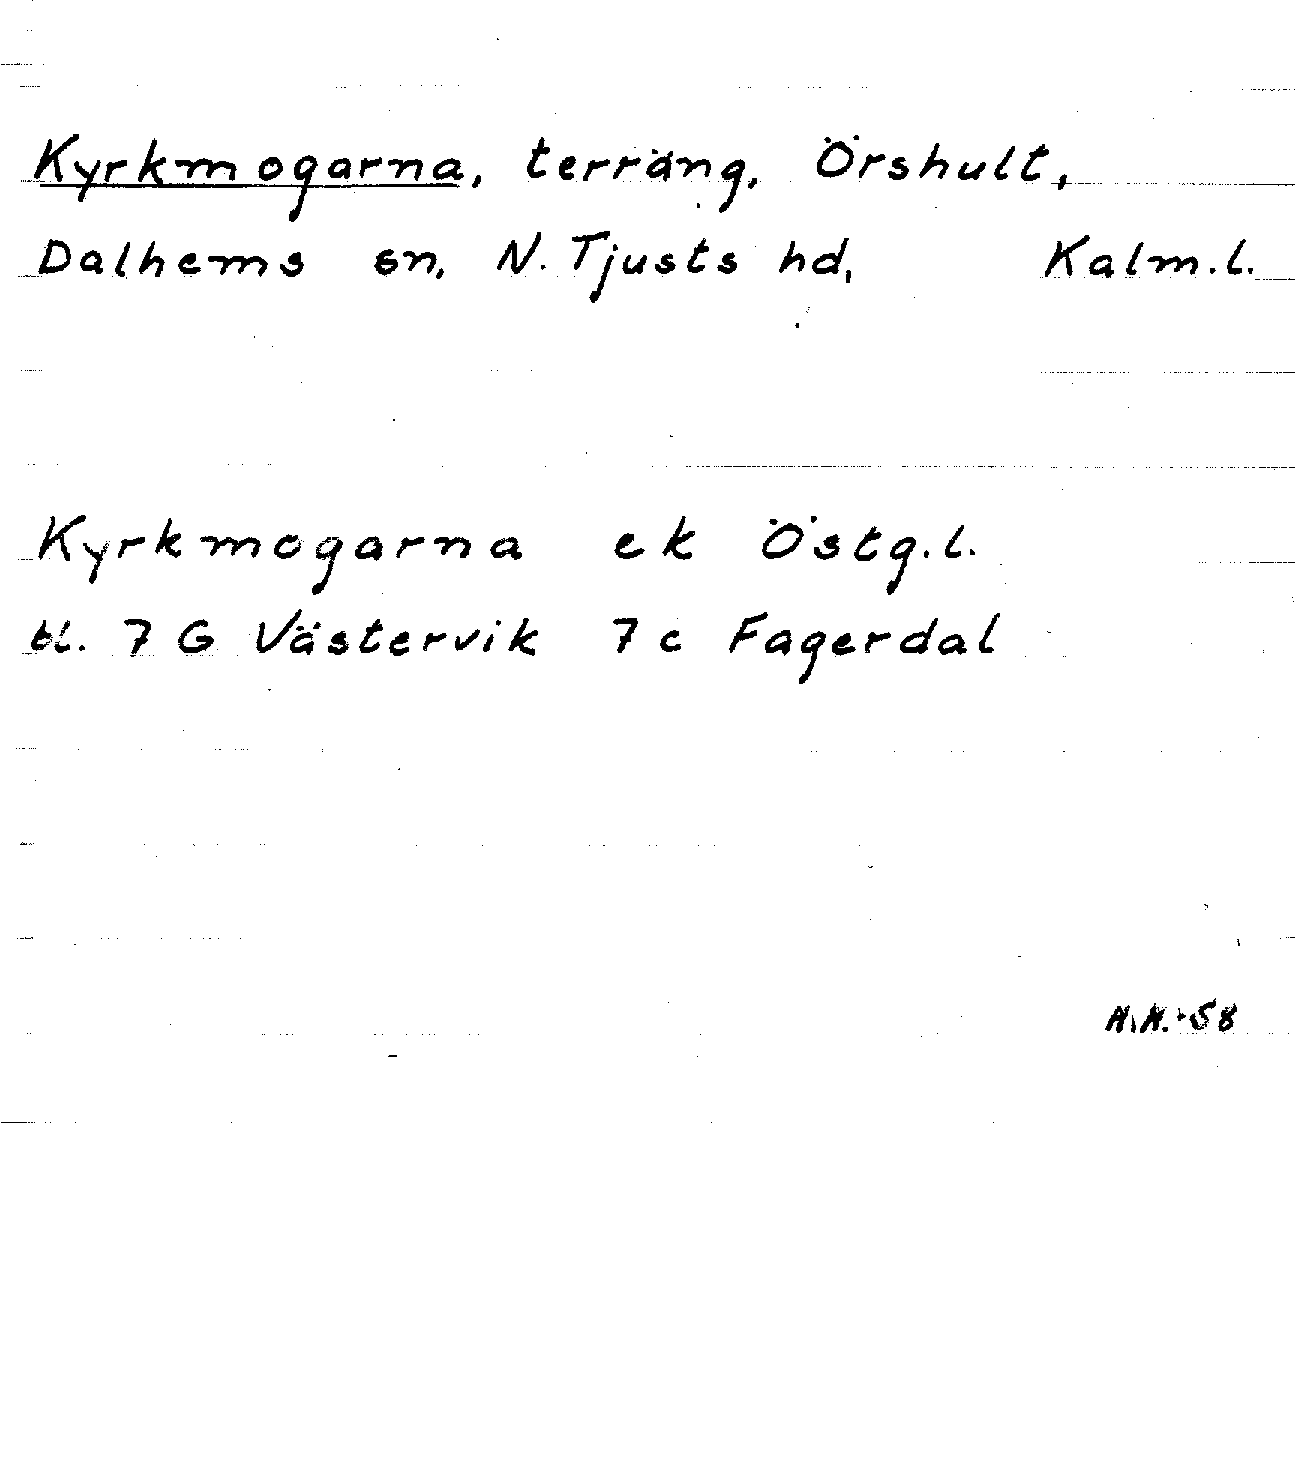 Kyrkmogarna, terräng, Örshult,
Dalhems sn, N. Tjusts hd, Kalm.l.
Kyrkmogarna ek Östg.l.
bl. 7 G Västervik 7 c Fagerdal
-58